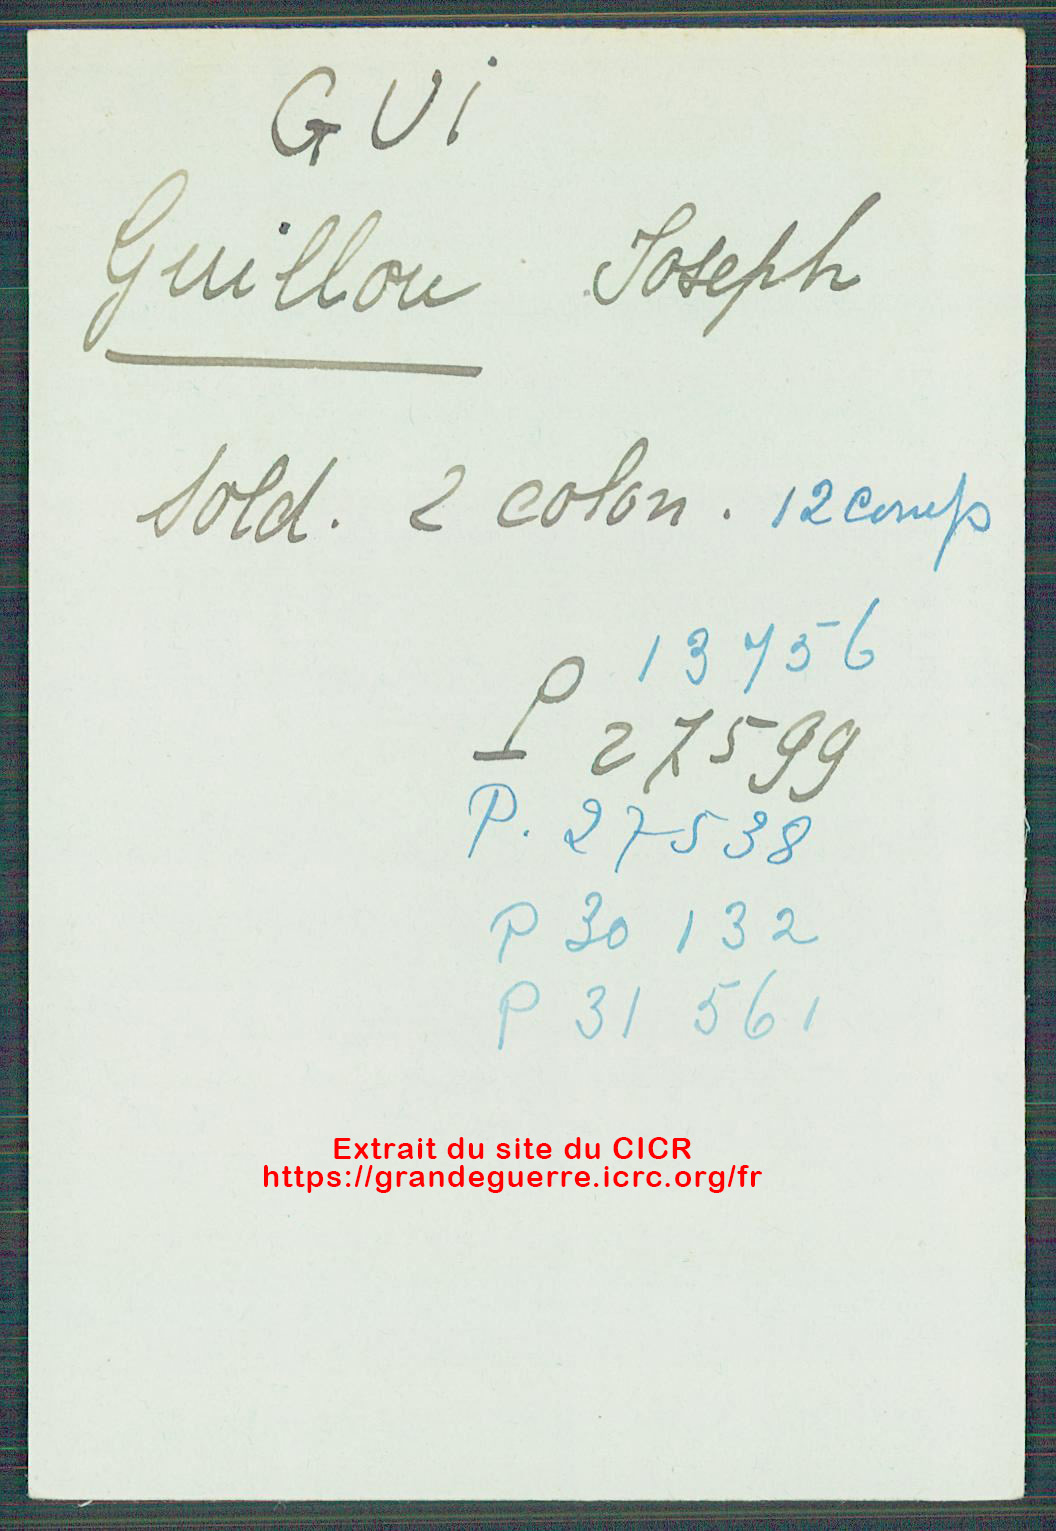 GUi
Guillou Joseph
sold. 2 colon. 12 comp
13756
P 27599
P. 27538
P 30 132
P 31 561
Extrait du site du CICR
https://grandeguerre.icrc.org/fr